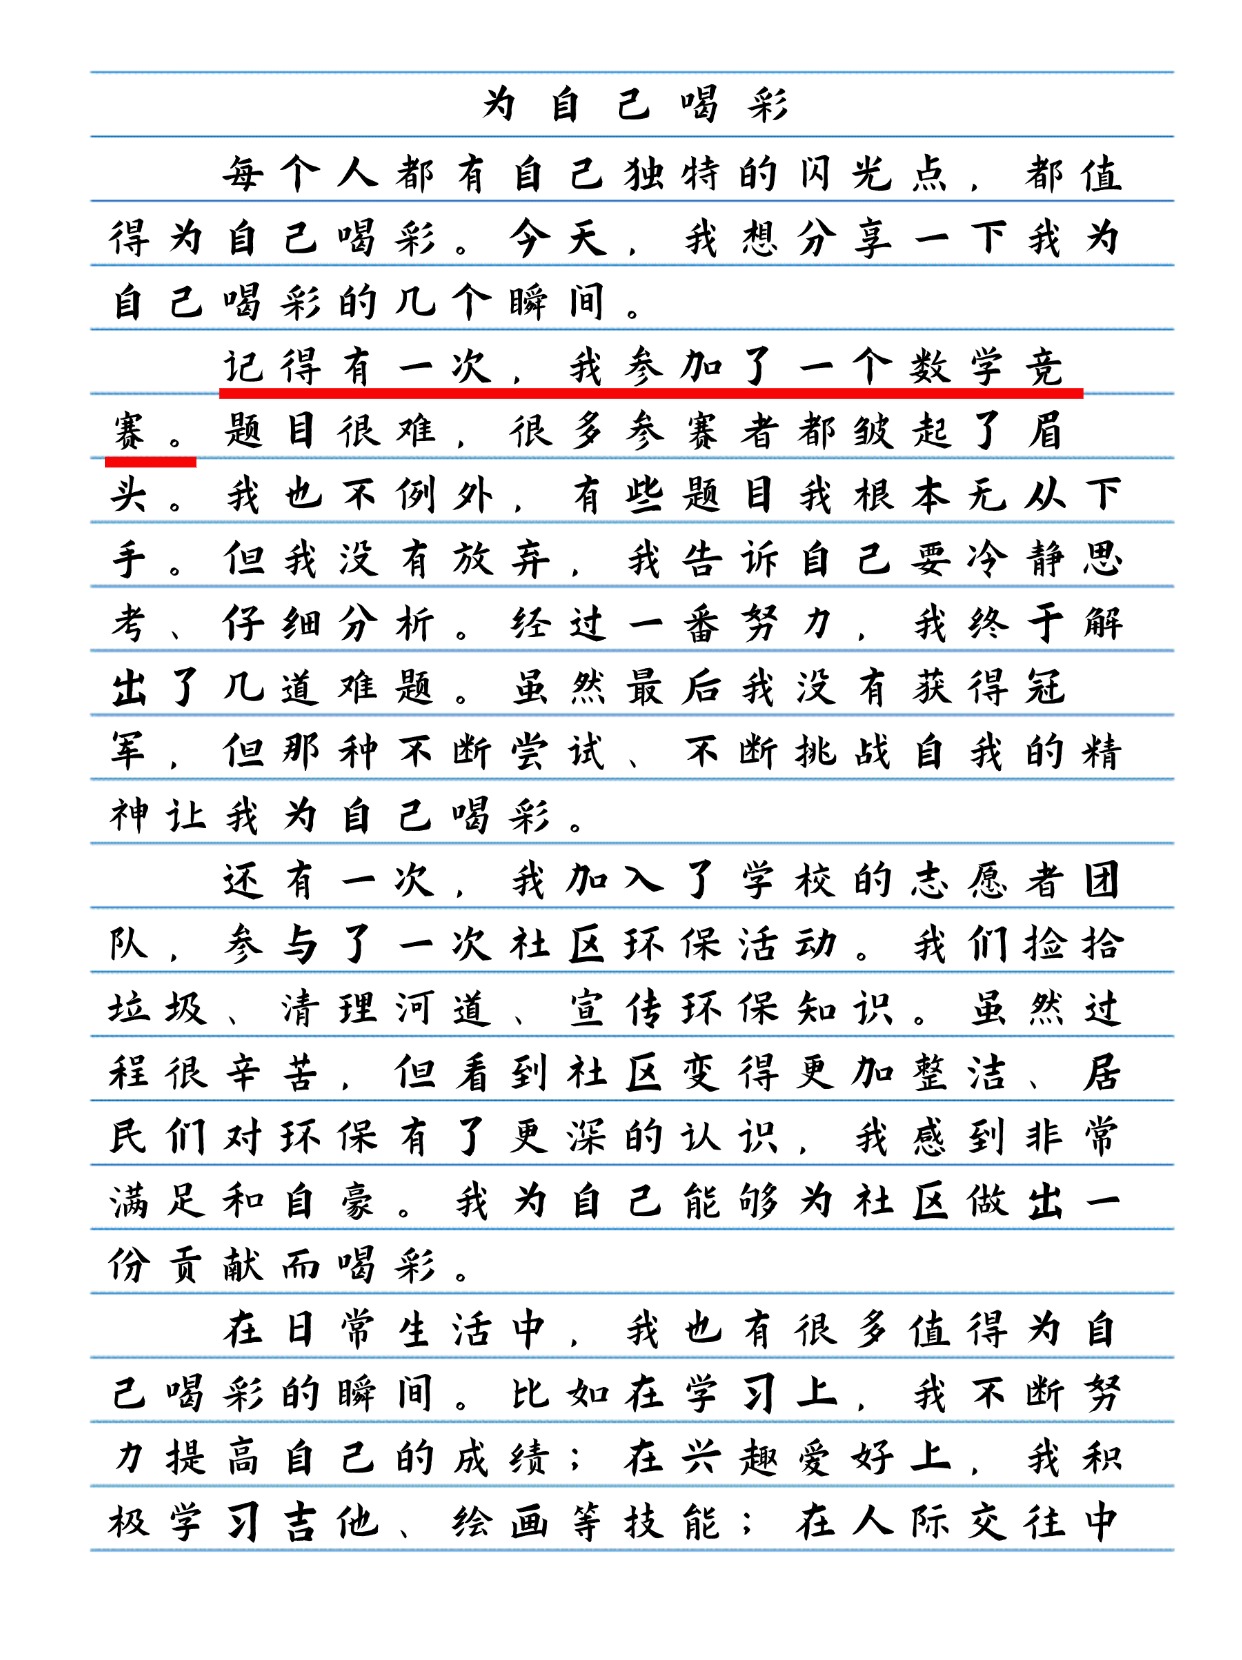 为自己喝彩
每个人都有自己独特的闪光点，都值
得为自己喝彩。今天，我想分享一下我为
自己喝彩的几个瞬间。
记得有一次，我参加了一个数学竞
赛。题目很难，很多参赛者都皱起了眉
头。我也不例外，有些题目我根本无从下
手。但我没有放弃，我告诉自己要冷静思
考、仔细分析。经过一番努力，我终于解
出了几道难题。虽然最后我没有获得冠
军，但那种不断尝试、不断挑战自我的精
神让我为自己喝彩。
还有一次，我加入了学校的志愿者团
队，参与了一次社区环保活动。我们捡拾
垃圾、清理河道、宣传环保知识。虽然过
程很辛苦，但看到社区变得更加整洁、居
民们对环保有了更深的认识，我感到非常
满足和自豪。我为自己能够为社区做出一
份贡献而喝彩。
在日常生活中，我也有很多值得为自
己喝彩的瞬间。比如在学习上，我不断努
力提高自己的成绩；在兴趣爱好上，我积
极学习吉他、绘画等技能；在人际交往中